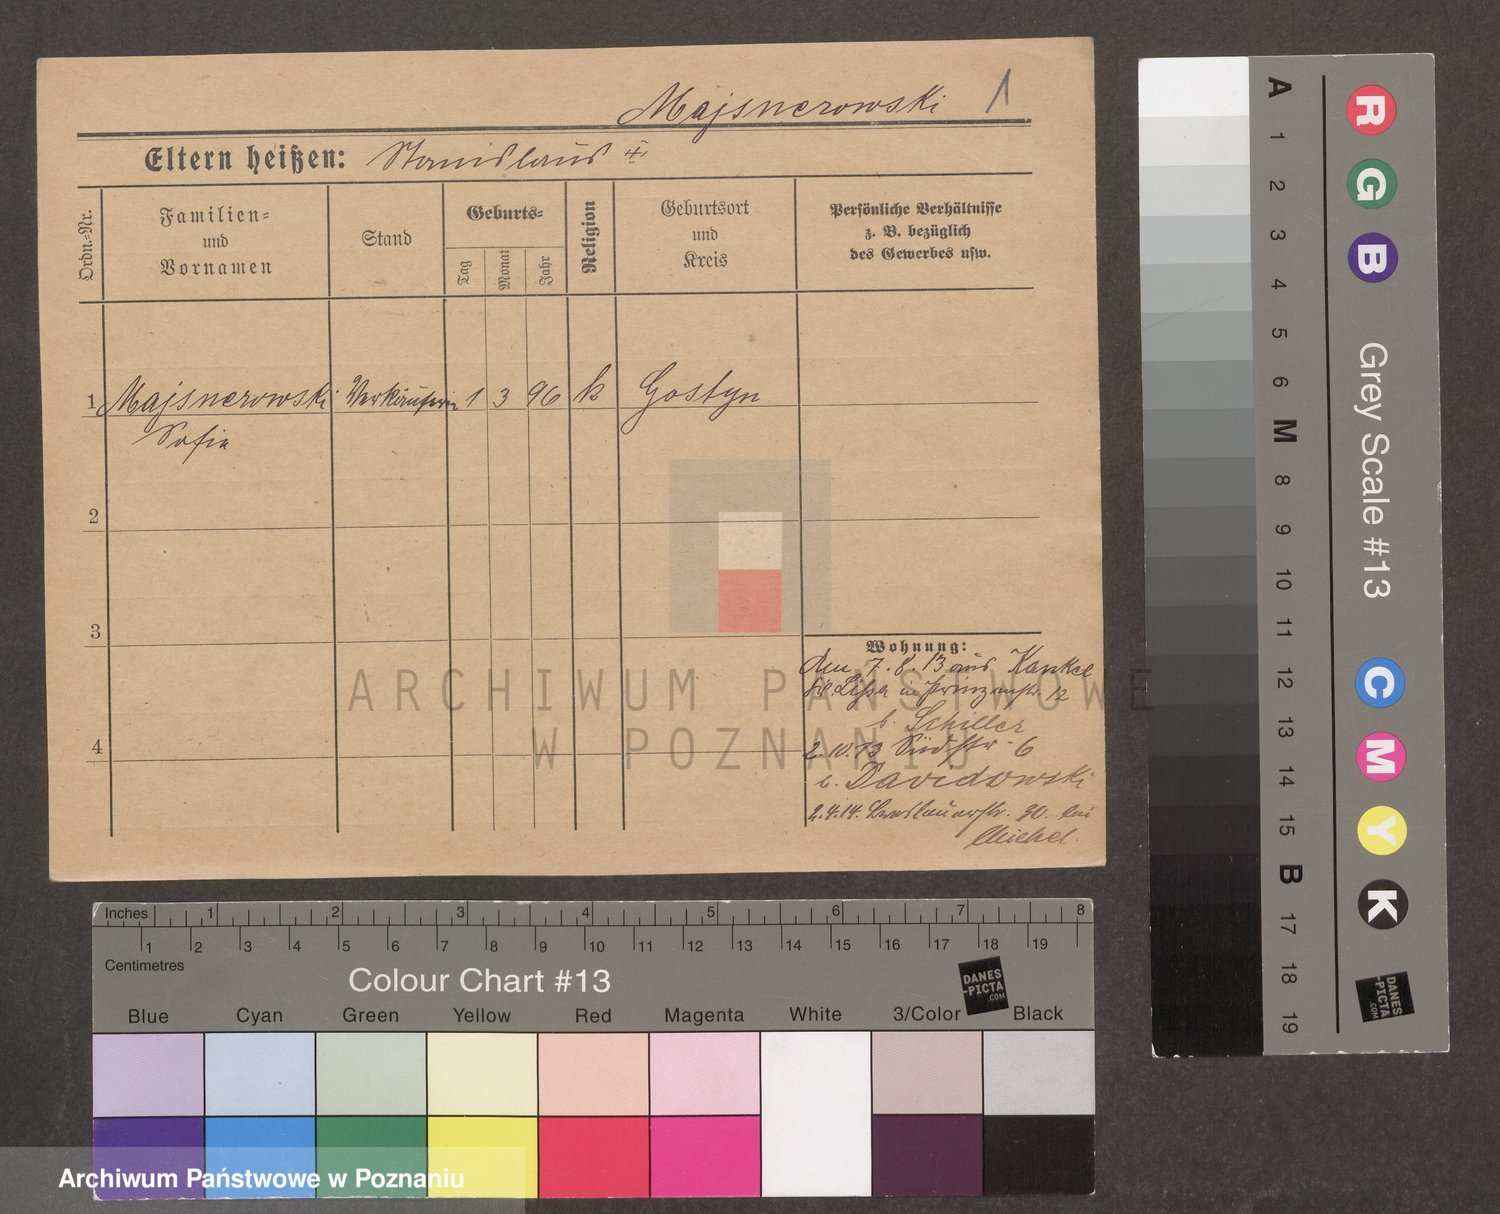 Majsnerowski 1
Eltern heißen: Stanislaus
Ordn.-Nr.
Familien-
und
Vornamen
Stand
Geburts-
Tag
Monat
Jahr
Religion
Geburtsort
und
Kreis
Persönliche Verhältnisse
z. B. bezüglich
des Gewerbes usw.
1 Majsnerowski Verkäuferin 1 3 96 k Gostyn
Sofia
2
3
4
Wohnung:
den 7.8.13 aus Kankel
Lissa in Prinzenstr. 12
b. Schiller
2.10.13 Südstr. 6
b. Dawidowski
2.4.14. Breslauerstr. 30. bei
Michel.
ARCHIWUM PAŃSTWOWE
W POZNANIU
Inches 1 2 3 4 5 6 7 8
1 2 3 4 5 6 7 8 9 10 11 12 13 14 15 16 17 18 19
Centimetres
Colour Chart #13
DANES
-PICTA
.COM
Blue Cyan Green Yellow Red Magenta White 3/Color Black
Archiwum Państwowe w Poznaniu
A 1 2 3 4 5 6 M 8 9 10 11 12 13 14 15 B 17 18 19
R G B
Grey Scale #13
C M Y K
DANES
-PICTA
.COM